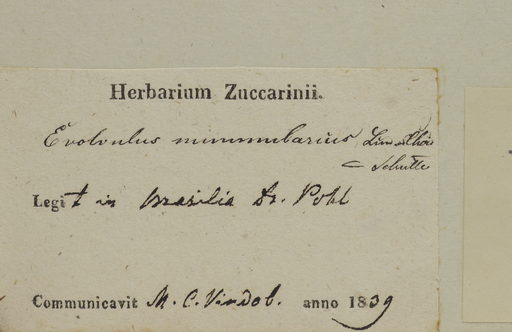 Herbarium Zuccarinii.
Evolvulus nummularius Lin.
Schulte
Legit in Brasilia Dr. Pohl
Communicavit M. C. Vindob. anno 1839